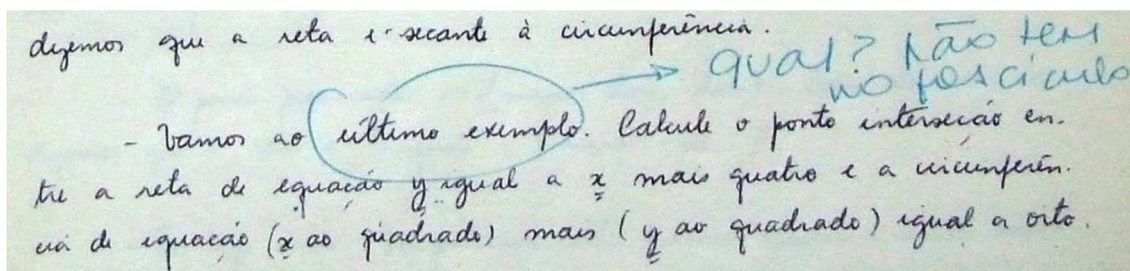 dizemos que a reta é secante à circunferência.
qual? Não tem
no fascículo
- Vamos ao último exemplo. Calcule o ponto interseção en-
tre a reta de equação y igual a x mais quatro e a circunferên-
cia de equação (x ao quadrado) mais (y ao quadrado) igual a oito.